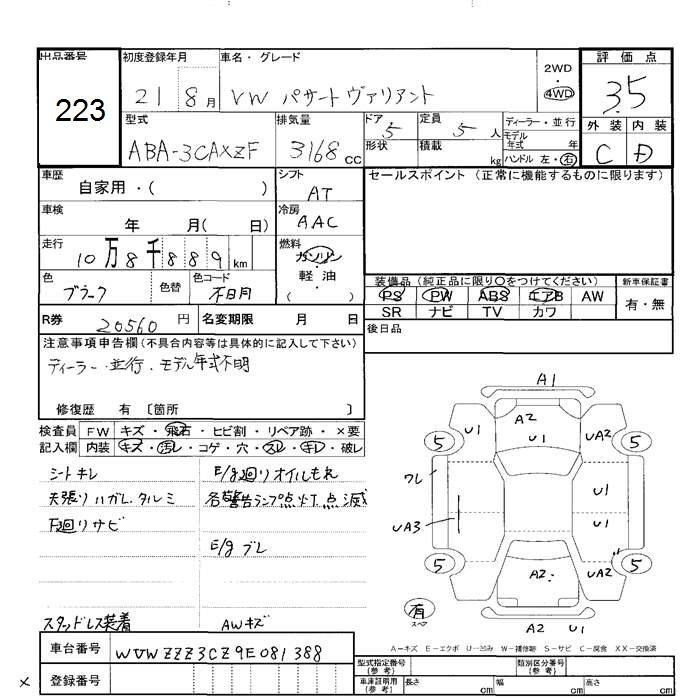 出品番号 初度登録年月 車名・グレード 評価点
223 21 8月 VW パサート ヴァリアント 2WD 4WD 3.5
型式 排気量 ドア 5 定員 5 人 ディーラー・並行 外装 内装
ABA-3CAXZF 3168 CC 形状 積載 kg モデル年式 年 C D
ハンドル 左・右
車歴 自家用・( ) シフト AT セールスポイント (正常に機能するものに限ります)
車検 年 月( 日) 冷房 AAC
走行 10万8千889 km 燃料 ガソリン
軽・油
( )
色 ブラーク 色替 色コード 不明
装備品 (純正品に限り○をつけてください) 新車保証書
PS PW ABS エアB AW 有・無
SR ナビ TV カワ
R券 20560 円 名変期限 月 日 後日品
注意事項申告欄 (不具合内容等は具体的に記入して下さい)
ディーラー・並行・モデル年式不明
修復歴 有 〔箇所 〕
検査員 FW キズ・飛石・ヒビ割・リペア跡・×要
記入欄 内装 キズ・汚レ・コゲ・穴・スレ・キレ・破レ
シートキレ E/g廻りオイルもれ
天張りハガレ、タルミ 各警告ランプ点灯、点滅
下廻りサビ
E/g ブレ
スタッドレス装着 AWキズ
A1
U1 A2 U1 UA2
5 5
ワレ U1
UA3 U1
5 5
A2 UA2
有 スペア
A2 U1
A-キズ E-エクボ U-凹み W-補修跡 S-サビ C-腐食 XX-交換済
車台番号 WVWZZZ3CZ9E081388
登録番号
型式指定番号 (参考) 類別区分番号 (参考)
車庫証明用 (参考) 長さ cm 幅 cm 高さ cm
×